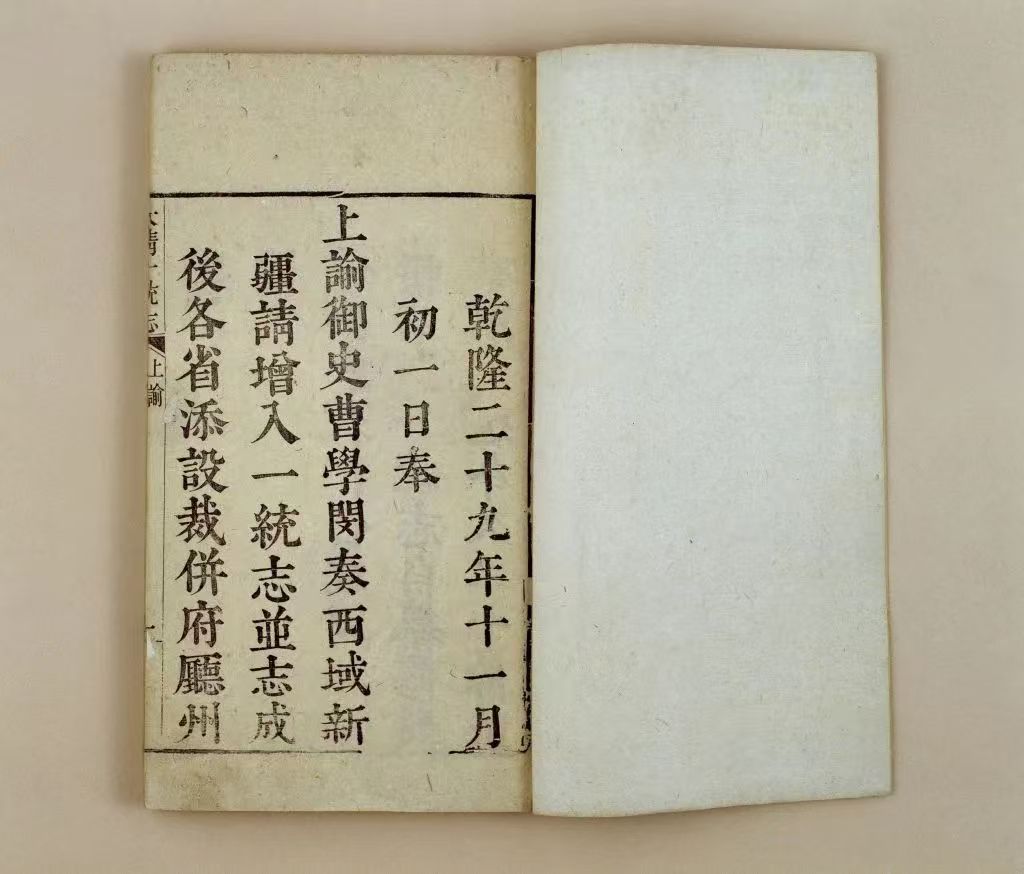 乾隆二十九年十一月
初一日奉
上諭御史曹學閔奏西域新
疆請增入一統志並志成
後各省添設裁併府廳州
大清一統志
上諭
一